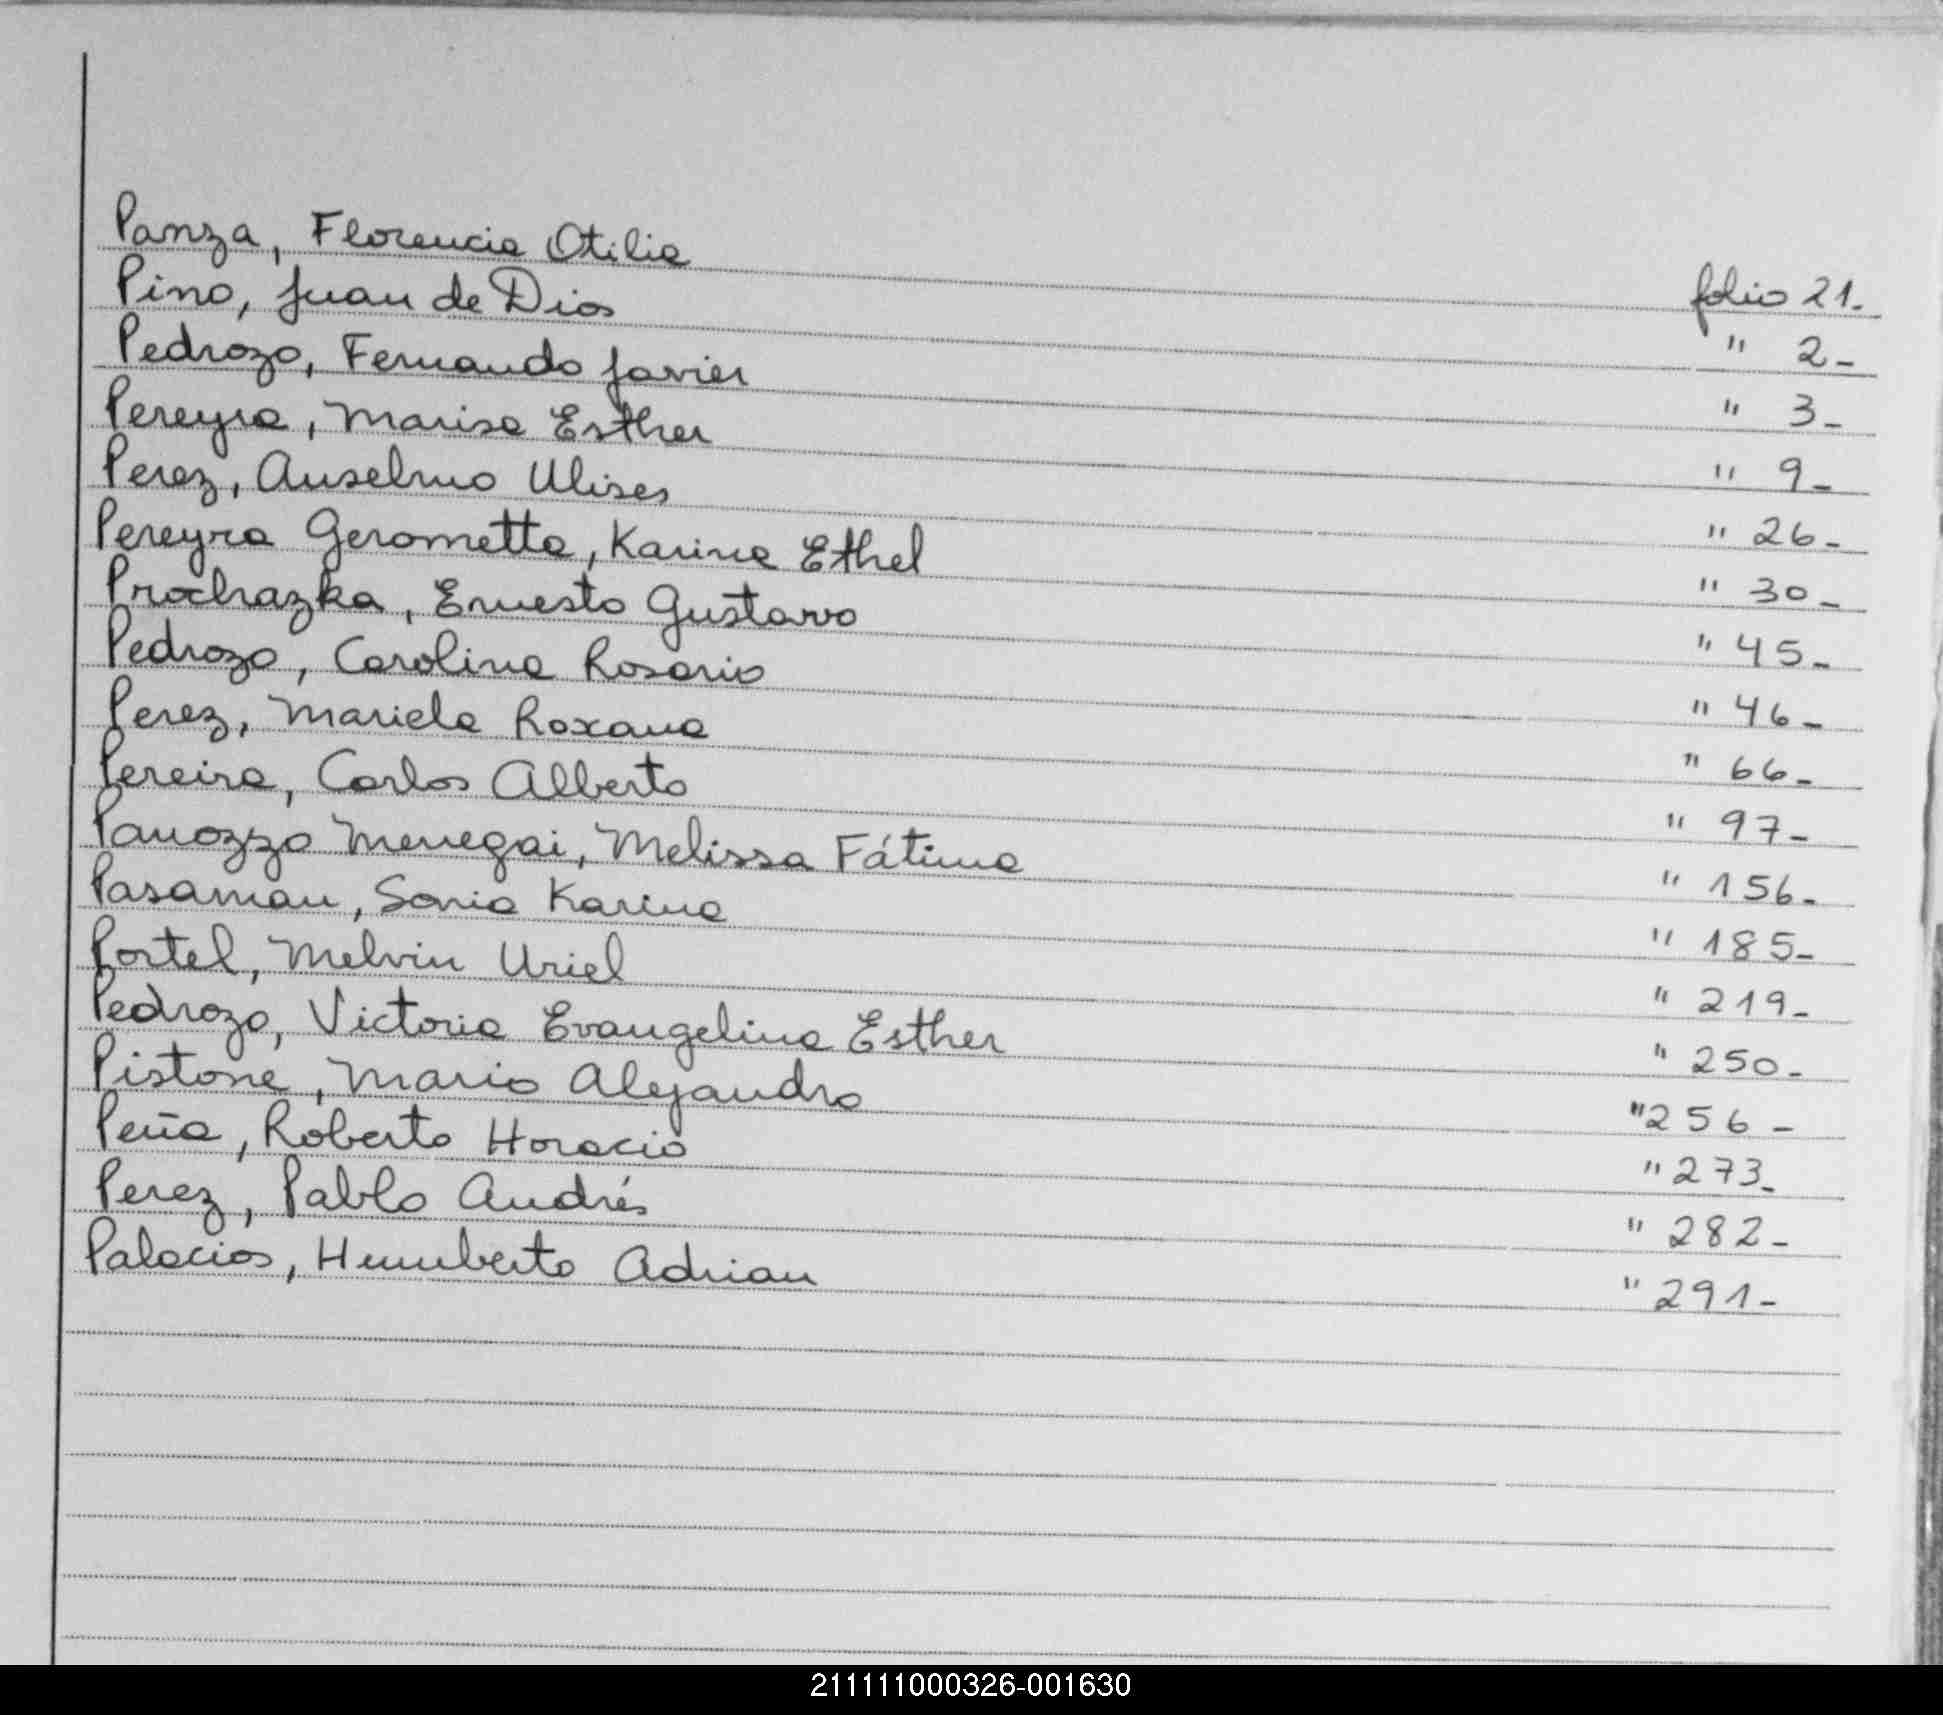 Panza, Florencia Otilia folio 21-
Pino, Juan de Dios " 2-
Pedrozo, Fernando Javier " 3-
Pereyra, Marisa Esther " 9-
Perez, Anselmo Ulises " 26-
Pereyra Gerometta, Karina Ethel " 30-
Prochazka, Ernesto Gustavo " 45-
Pedrozo, Carolina Rosario " 46-
Perez, Mariela Roxana " 66-
Pereira, Carlos Alberto " 97-
Panozzo Menegai, Melissa Fátima " 156-
Pasaman, Sonia Karina " 185-
Portel, Melvin Uriel " 219-
Pedrozo, Victoria Evangelina Esther " 250-
Pistone, Mario Alejandro " 256-
Peña, Roberto Horacio " 273-
Perez, Pablo Andrés " 282-
Palacios, Humberto Adrian " 291-
211111000326-001630